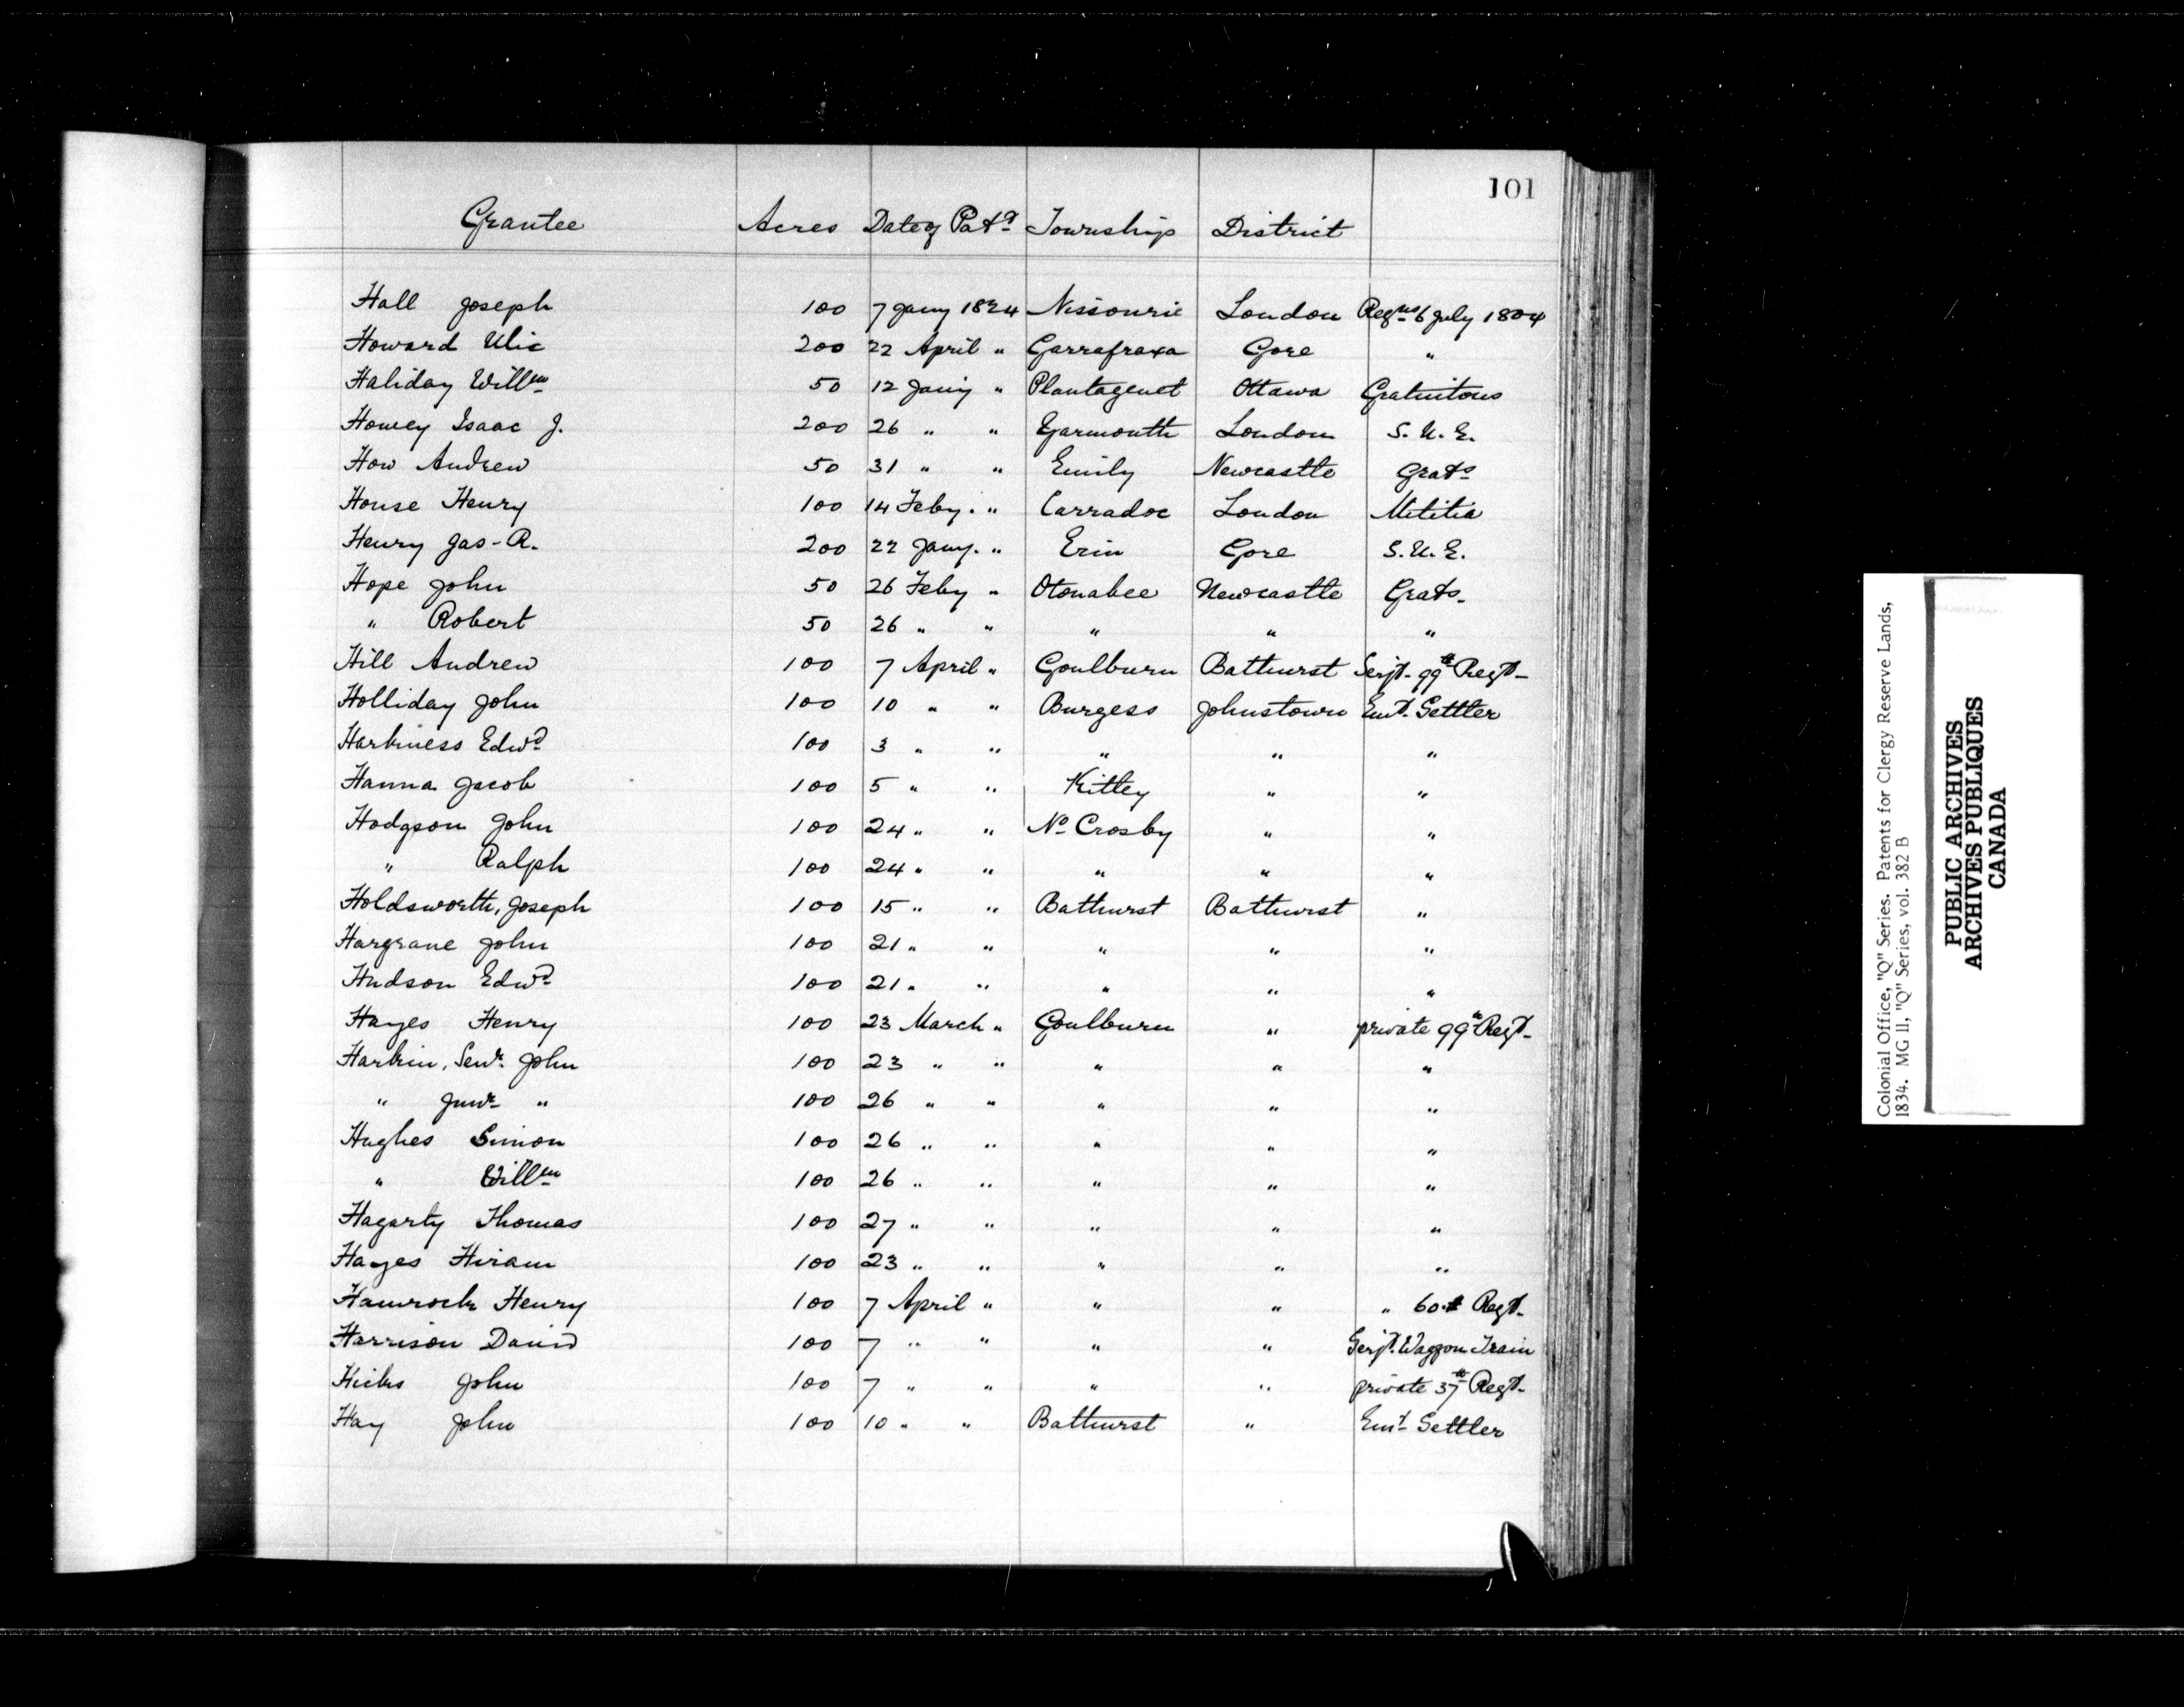 101
Grantee Acres Date of Patd Township District
Hall Joseph 100 7 Jany 1824 Nissourie London Regns 6 July 1804
Howard Ulic 200 22 April " Garrafraxa Gore "
Haliday Willm 50 12 Jany " Plantagenet Ottawa Gratuitous
Homey Isaac J. 200 26 " " Yarmouth London S. U. E.
How Andrew 50 31 " " Emily Newcastle Grats
House Henry 100 14 Feby. " Carradoc London Militia
Henry Jas. R. 200 22 Jany. " Erin Gore S. U. E.
Hope John 50 26 Feby " Otonabee Newcastle Grats.
" Robert 50 26 " " " " "
Hill Andrew 100 7 April " Goulburn Bathurst Serjt. 99th Regt.
Holliday John 100 10 " " Burgess Johnstown Emt. Settler
Harkness Edwd 100 3 " " " " "
Hanna Jacob 100 5 " " Kitley " "
Hodgson John 100 24 " " No Crosby " "
" Ralph 100 24 " " " " "
Holdsworth, Joseph 100 15 " " Bathurst Bathurst "
Hargrave John 100 21 " " " " "
Hudson Edwd 100 21 " " " " "
Hayes Henry 100 23 March " Goulburn " private 99th Regt.
Harkin, Senr. John 100 23 " " " " "
" Junr " 100 26 " " " " "
Hughes Simon 100 26 " " " " "
" Willm 100 26 " " " " "
Hagarty Thomas 100 27 " " " " "
Hayes Hiram 100 23 " " " " "
Hamrock Henry 100 7 April " " " " 60th Regt.
Harrison David 100 7 " " " " Serjt. Waggon Train
Hicks John 100 7 " " " " private 37th Regt.
Hay John 100 10 " " Bathurst " Emt. Settler
Colonial Office, "Q" Series. Patents for Clergy Reserve Lands,
1834. MG 11, "Q" Series, vol. 382 B
PUBLIC ARCHIVES
ARCHIVES PUBLIQUES
CANADA